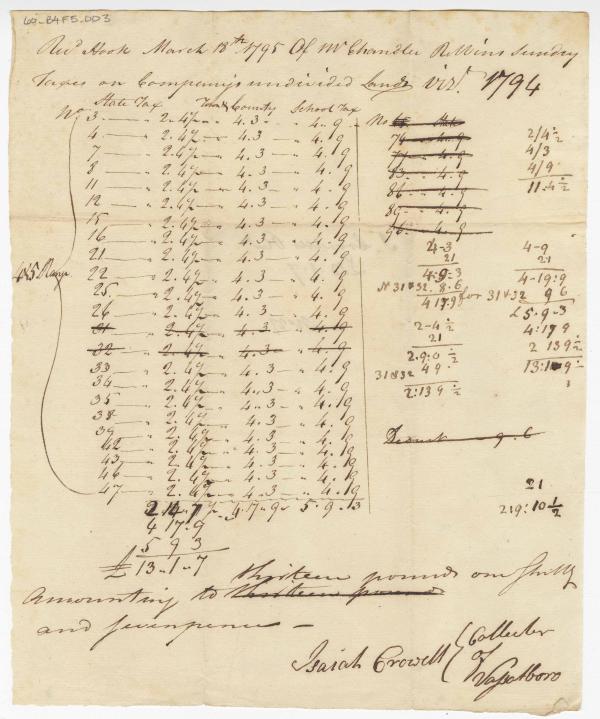 69-B4F5.DD3
March 18th 1795 Of Mr Chandler Robbins Sundry
Taxes on Company's undivided Lands Viz. 1794
State Tax County School Tax
No. 3 2.4½ 4.3 4.9 No
4 2.4½ 4.3 4.9 74 4.9 2/4½
7 2.4½ 4.3 4.9 77 4.9 4/3
8 2.4½ 4.3 4.9 83 4.9 4/9
11 2.4½ 4.3 4.9 86 4.9 11.4½
12 2.4½ 4.3 4.9 89 4.9
15 2.4½ 4.3 4.9 96 4.9
16 2.4½ 4.3 4.9 4-3 4-9
21 2.4½ 4.3 4.9 21 21
4&5 Range 22 2.4½ 4.3 4.9 4.9.3 4-19:9
25 2.4½ 4.3 4.9 N 31&32. 8.6 for 31&32 9 6
26 2.4½ 4.3 4.9 4 17.9 £5.9.3
31 2.4½ 4.3 4.9 2-4½ 4:17 9
32 2.4½ 4.3 4.9 21 2 13 9½
33 2.4½ 4.3 4.9 2.9:0½
34 2.4½ 4.3 4.9 31&32 4 9
35 2.4½ 4.3 4.9 2:13 9½
38 2.4½ 4.3 4.9
39 2.4½ 4.3 4.9 Deduct 9.6
42 2.4½ 4.3 4.9
43 2.4½ 4.3 4.9
46 2.4½ 4.3 4.9 21
47 2.4½ 4.3 4.9 219:10½
4.17.9
4 17.9
5 9 3
£13-1-7
thirteen pounds one Shilly
Amounting to thirteen pound
and sevenpence
Isaiah Crowell Collecter
of
Vassalboro